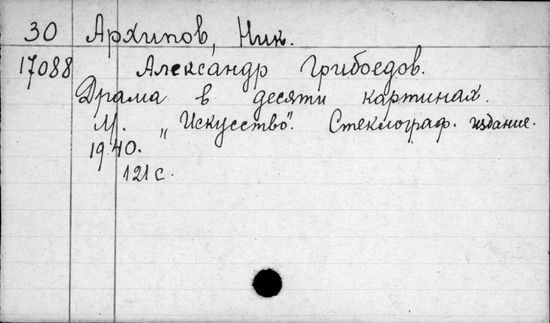 30 Архипов, Ник.
17088 Александр Грибоедов.
Драма в десяти картинах.
М. „Искусство". Стеклограф. издание.
1940.
121 с.